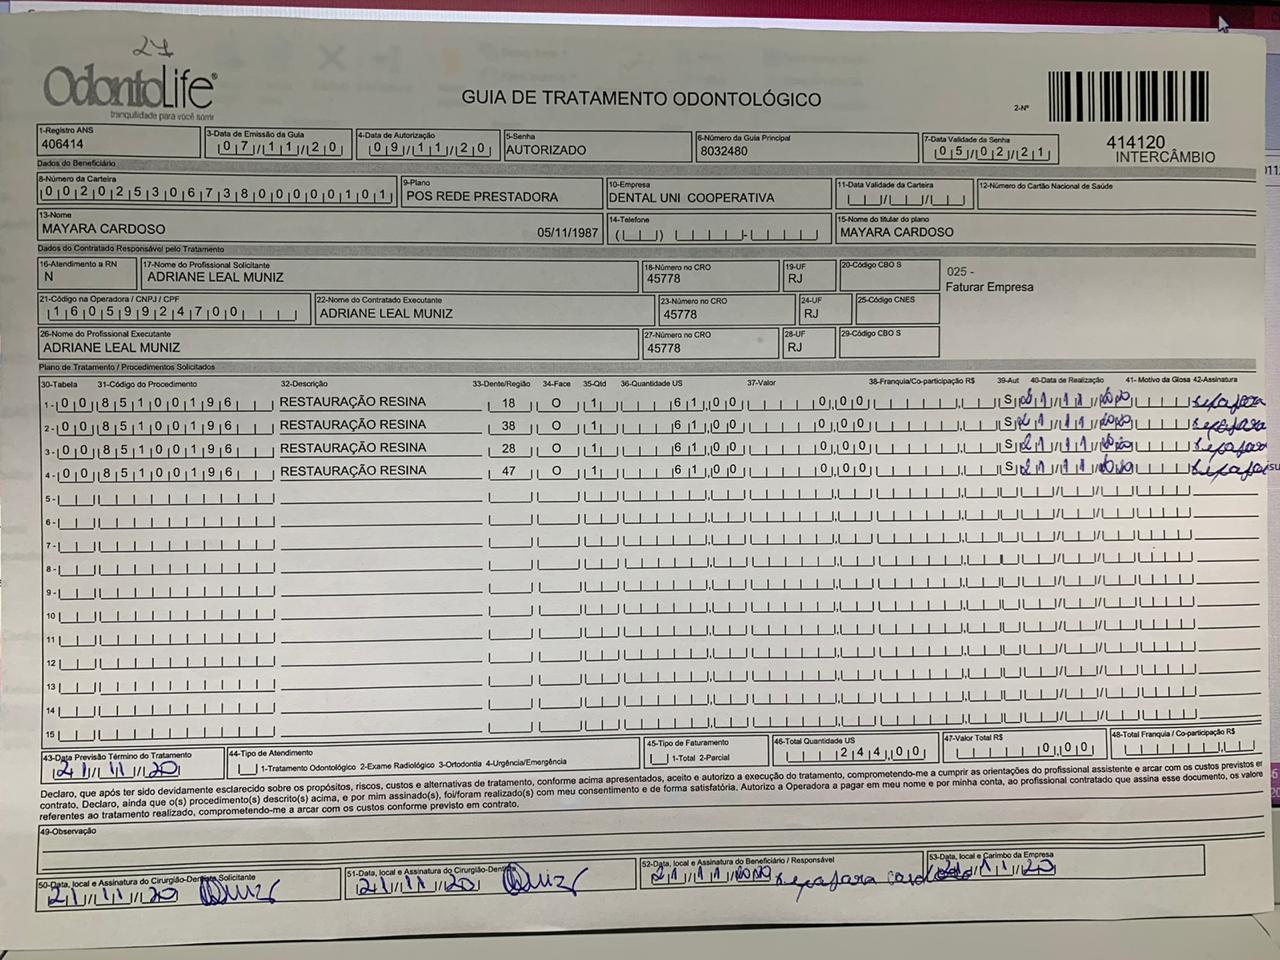 27
OdontoLife®
tranquilidade para você sorrir
GUIA DE TRATAMENTO ODONTOLÓGICO
2-Nº
414120
INTERCÂMBIO
1-Registro ANS
406414
3-Data de Emissão da Guia
07/11/20
4-Data de Autorização
09/11/20
5-Senha
AUTORIZADO
6-Número da Guia Principal
8032480
7-Data Validade da Senha
05/02/21
Dados do Beneficiário
8-Número da Carteira
00202530673800000101
9-Plano
POS REDE PRESTADORA
10-Empresa
DENTAL UNI COOPERATIVA
11-Data Validade da Carteira
12-Número do Cartão Nacional de Saúde
13-Nome
MAYARA CARDOSO 05/11/1987
14-Telefone
15-Nome do titular do plano
MAYARA CARDOSO
Dados do Contratado Responsável pelo Tratamento
16-Atendimento a RN
N
17-Nome do Profissional Solicitante
ADRIANE LEAL MUNIZ
18-Número no CRO
45778
19-UF
RJ
20-Código CBO S
025 -
Faturar Empresa
21-Código na Operadora / CNPJ / CPF
16059924700
22-Nome do Contratado Executante
ADRIANE LEAL MUNIZ
23-Número no CRO
45778
24-UF
RJ
25-Código CNES
26-Nome do Profissional Executante
ADRIANE LEAL MUNIZ
27-Número no CRO
45778
28-UF
RJ
29-Código CBO S
Plano de Tratamento / Procedimentos Solicitados
30-Tabela 31-Código do Procedimento 32-Descrição 33-Dente/Região 34-Face 35-Qtd 36-Quantidade US 37-Valor 38-Franquia/Co-participação R$ 39-Aut 40-Data de Realização 41- Motivo da Glosa 42-Assinatura
1- 00 85100196 RESTAURAÇÃO RESINA 18 O 1 61,00 0,00 S 21/11/2020
2- 00 85100196 RESTAURAÇÃO RESINA 38 O 1 61,00 0,00 S 21/11/2020
3- 00 85100196 RESTAURAÇÃO RESINA 28 O 1 61,00 0,00 S 21/11/2020
4- 00 85100196 RESTAURAÇÃO RESINA 47 O 1 61,00 0,00 S 21/11/2020
5-
6-
7-
8-
9-
10
11
12
13
14
15
43-Data Previsão Término do Tratamento
21/11/20
44-Tipo de Atendimento
1-Tratamento Odontológico 2-Exame Radiológico 3-Ortodontia 4-Urgência/Emergência
45-Tipo de Faturamento
1-Total 2-Parcial
46-Total Quantidade US
244,00
47-Valor Total R$
0,00
48-Total Franquia / Co-participação R$
Declaro, que após ter sido devidamente esclarecido sobre os propósitos, riscos, custos e alternativas de tratamento, conforme acima apresentados, aceito e autorizo a execução do tratamento, comprometendo-me a cumprir as orientações do profissional assistente e arcar com os custos previstos em
contrato. Declaro, ainda que o(s) procedimento(s) descrito(s) acima, e por mim assinado(s), foi/foram realizado(s) com meu consentimento e de forma satisfatória. Autorizo a Operadora a pagar em meu nome e por minha conta, ao profissional contratado que assina esse documento, os valores
referentes ao tratamento realizado, comprometendo-me a arcar com os custos conforme previsto em contrato.
49-Observação
50-Data, local e Assinatura do Cirurgião-Dentista Solicitante
21/11/20
51-Data, local e Assinatura do Cirurgião-Dentista
21/11/20
52-Data, local e Assinatura do Beneficiário / Responsável
21/11/2020
53-Data, local e Carimbo da Empresa
21/11/20